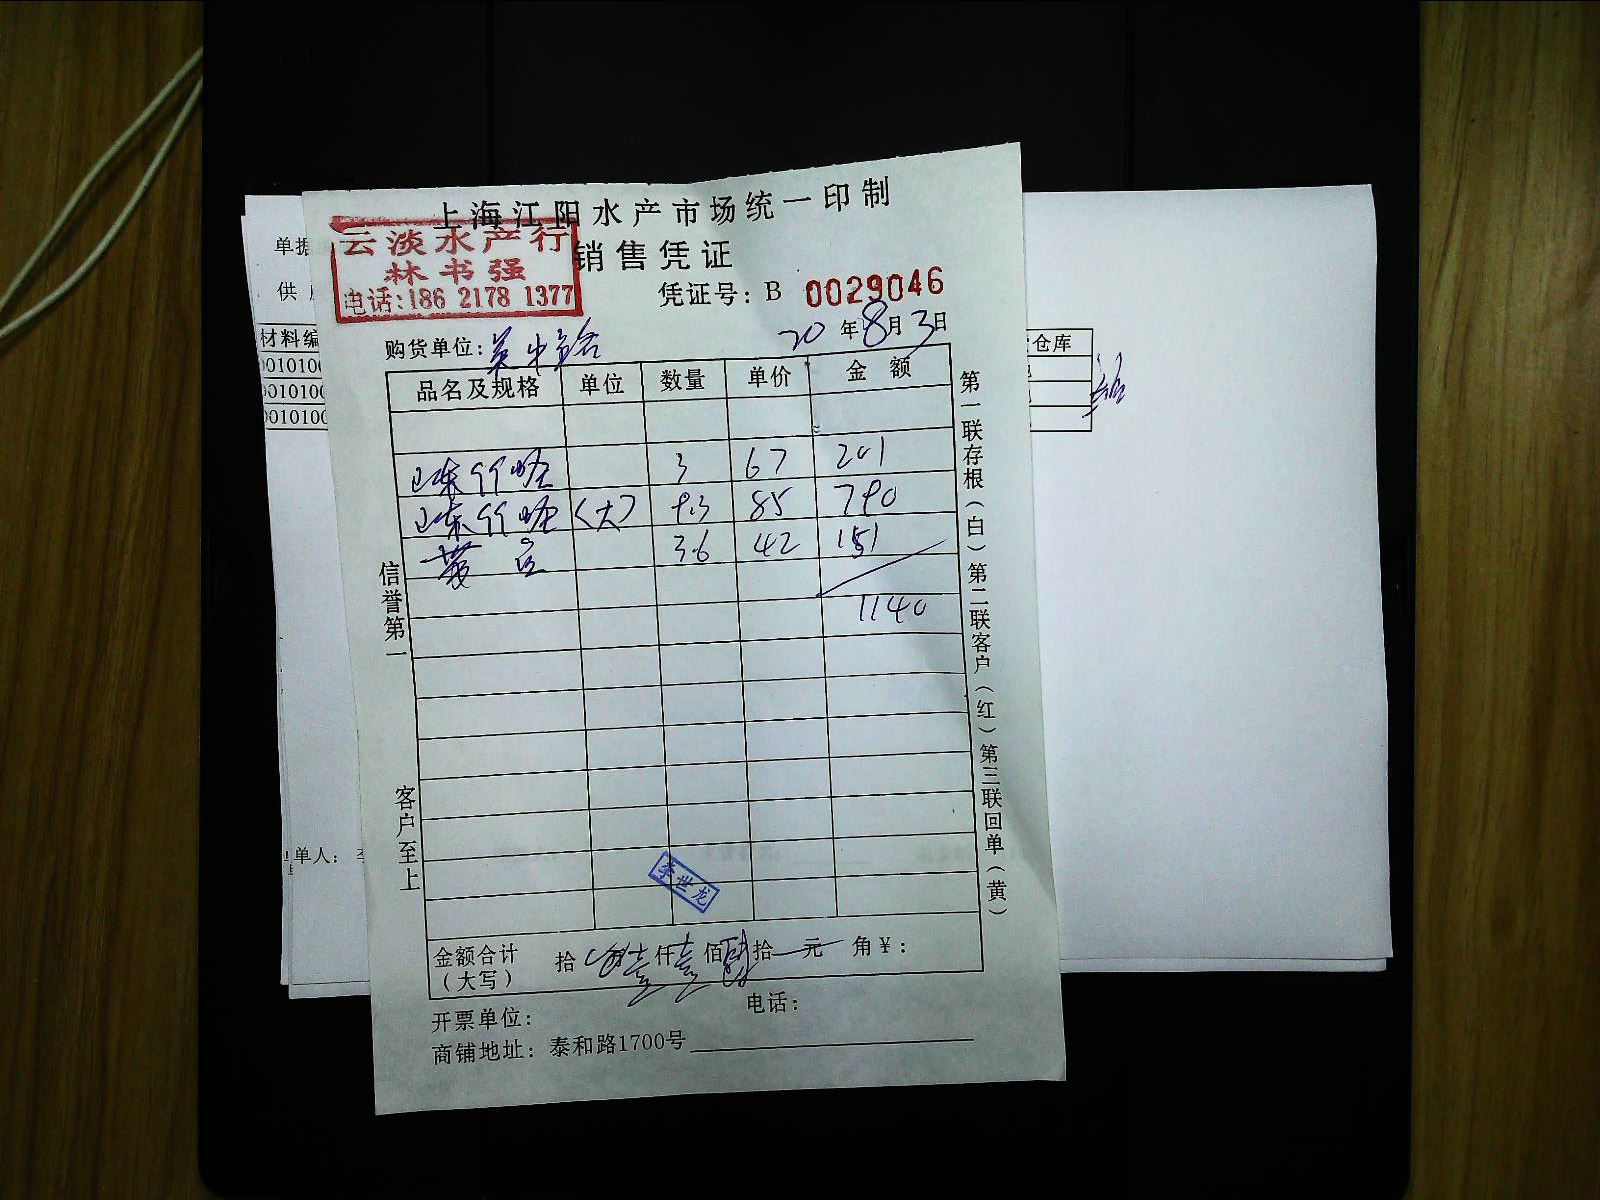 上海江阳水产市场统一印制
销售凭证
云淡水产行
林书强
电话:186 2178 1377
凭证号: B 0029046
购货单位:
20 年 8 月 3 日
品名及规格 单位 数量 单价 金额
山东竹蛏 3 67 201
山东竹蛏 (大) 9.3 85 790
3.6 42 151
1140
金额合计 拾 万壹仟壹佰肆拾 元 角¥:
(大写)
李世龙
开票单位: 电话:
商铺地址: 泰和路1700号
信誉第一
客户至上
第一联存根(白)第二联客户(红)第三联回单(黄)
单据
供
材料编
0010100
0010100
0010100
仓库
单人: